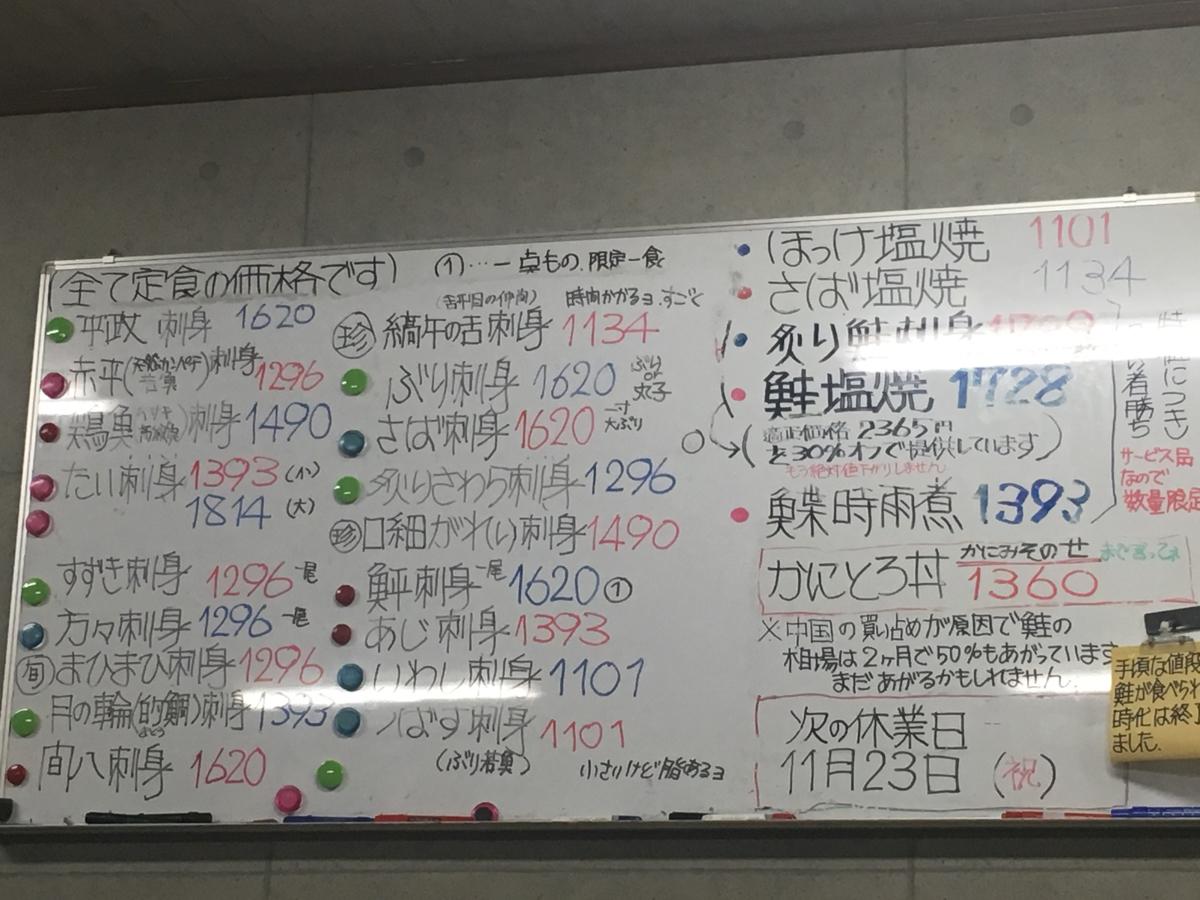 (全て定食の価格です)
平政 刺身 1620
赤平(天然カンパチ若魚)刺身 1296
刺身 1490
たい刺身 1393 (小)
1814 (大)
すずき刺身 1296 一尾
方々刺身 1296 一尾
旬 まひまひ刺身 1296
月の輪(的鯛)刺身 1393
まとう
刺身 1620
①…一点もの、限定一食
(舌平目の仲間) 時間かかるヨ.すごく
珍 縞牛の舌刺身 1134
ぶり刺身 1620 ぶり or 丸子
さばの刺身 1620 一寸大ぶり
炙りさわら刺身 1296
珍 口細がれい刺身 1490
刺身 一尾 1620 ①
あじ刺身 1393
いわし刺身 1101
つばす刺身 1101
(ぶり若魚) 小さいけど脂あるヨ
ほっけ塩焼 1101
さば塩焼 1134
炙り鮭刺身
鮭塩焼 1728
(適正価格 2365円
を30%オフで提供しています)
もう絶対値下がりしません
時雨煮 1393
い者勝ち
サービス品
なので
数量限定
かにとろ丼 かにみそのせ まで言ってネ
1360
※中国の買い占めが原因で鮭の
相場は2ヶ月で50%もあがっています
まだあがるかもしれません.
次の休業日
11月23日 (祝)
手頃な値段
鮭が食べられ
時化は終了
ました.